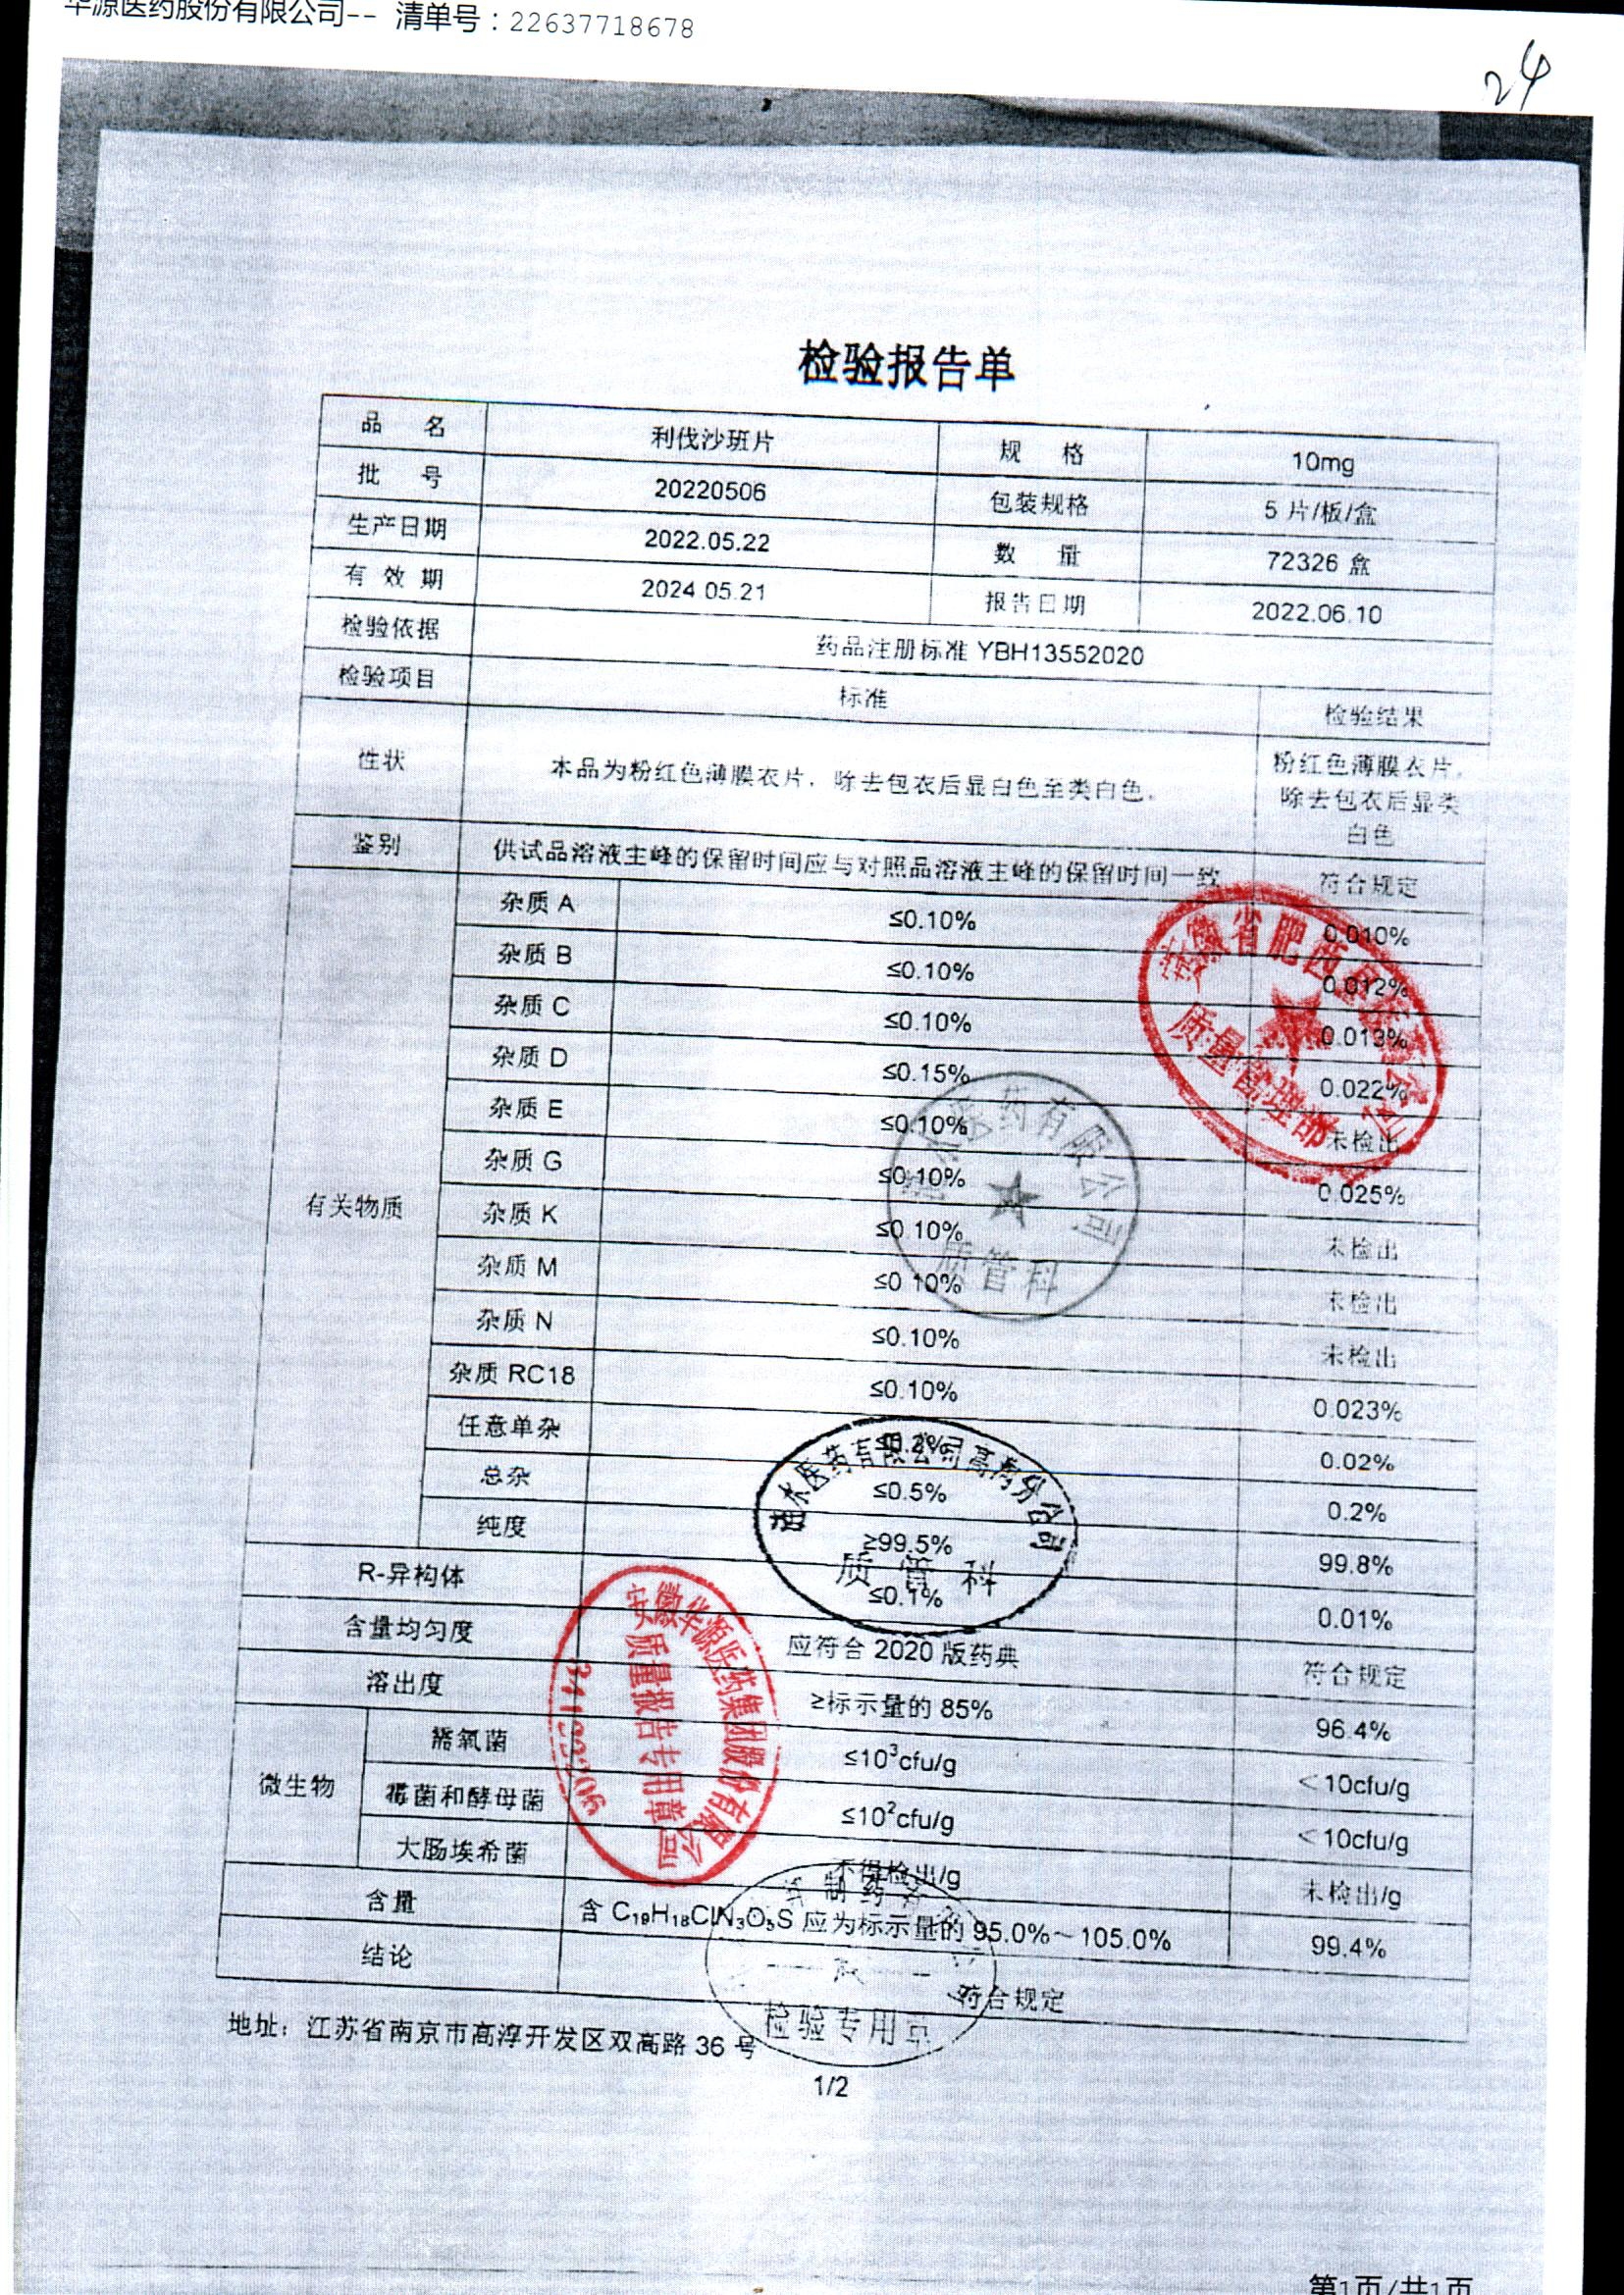 华源医药股份有限公司-- 清单号：22637718678
24
检验报告单
品 名 利伐沙班片 规 格 10mg
批 号 20220506 包装规格 5 片/板/盒
生产日期 2022.05.22 数 量 72326 盒
有 效 期 2024.05.21 报告日期 2022.06.10
检验依据 药品注册标准 YBH13552020
检验项目 标准 检验结果
性状 本品为粉红色薄膜衣片，除去包衣后显白色至类白色。 粉红色薄膜衣片，
除去包衣后显类
白色
鉴别 供试品溶液主峰的保留时间应与对照品溶液主峰的保留时间一致 符合规定
有关物质
杂质 A ≤0.10% 0.010%
杂质 B ≤0.10% 0.012%
杂质 C ≤0.10% 0.013%
杂质 D ≤0.15% 0.022%
杂质 E ≤0.10% 未检出
杂质 G ≤0.10% 0.025%
杂质 K ≤0.10% 未检出
杂质 M ≤0.10% 未检出
杂质 N ≤0.10% 未检出
杂质 RC18 ≤0.10% 0.023%
任意单杂 ≤0.2% 0.02%
总杂 ≤0.5% 0.2%
纯度 ≥99.5% 99.8%
R-异构体 ≤0.1% 0.01%
含量均匀度 应符合 2020 版药典 符合规定
溶出度 ≥标示量的 85% 96.4%
微生物
需氧菌 ≤10³cfu/g <10cfu/g
霉菌和酵母菌 ≤10²cfu/g <10cfu/g
大肠埃希菌 不得检出/g 未检出/g
含量 含 C₁₉H₁₈ClN₃O₅S 应为标示量的 95.0%～105.0% 99.4%
结论 符合规定
地址：江苏省南京市高淳开发区双高路 36 号
1/2
安徽省肥西县
质量管理部
医药有限公司
质管科
医药有限公司高河分公司
质管科
安徽华源医药集团股份有限公司
质量报告专用章
制药
检验专用章
第1页/共1页